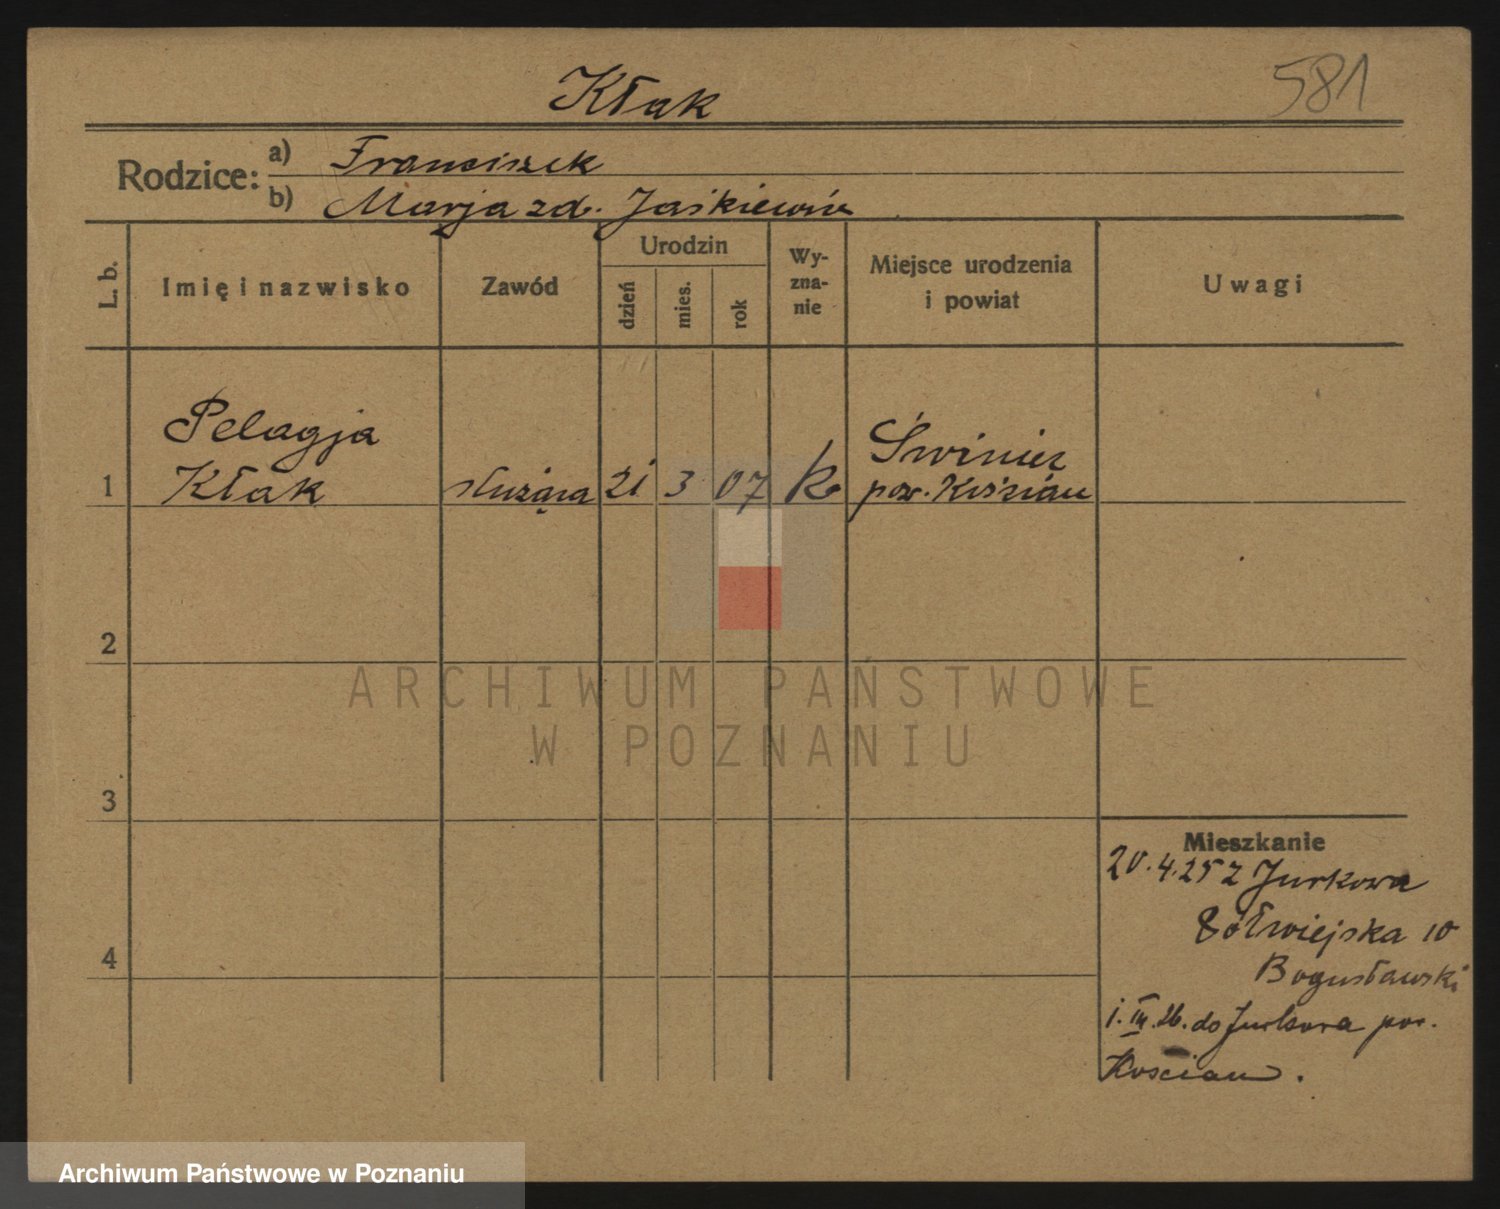 581
Kłak
Rodzice: a) Franciszek
b) Marja zd. Jaśkiewicz
L. b.
Imię i nazwisko
Zawód
Urodzin
dzień
mies.
rok
Wy-
zna-
nie
Miejsce urodzenia
i powiat
Uwagi
Pelagja
1 Kłak służąca 21 3 07 k
Świniec
pow. Kościan
2
3
4
Mieszkanie
20.4.25 z Jurkowa
Półwiejska 10
Bogusławski
1.III.26. do Jurkowa pow.
Kościan.
ARCHIWUM PAŃSTWOWE
W POZNANIU
Archiwum Państwowe w Poznaniu